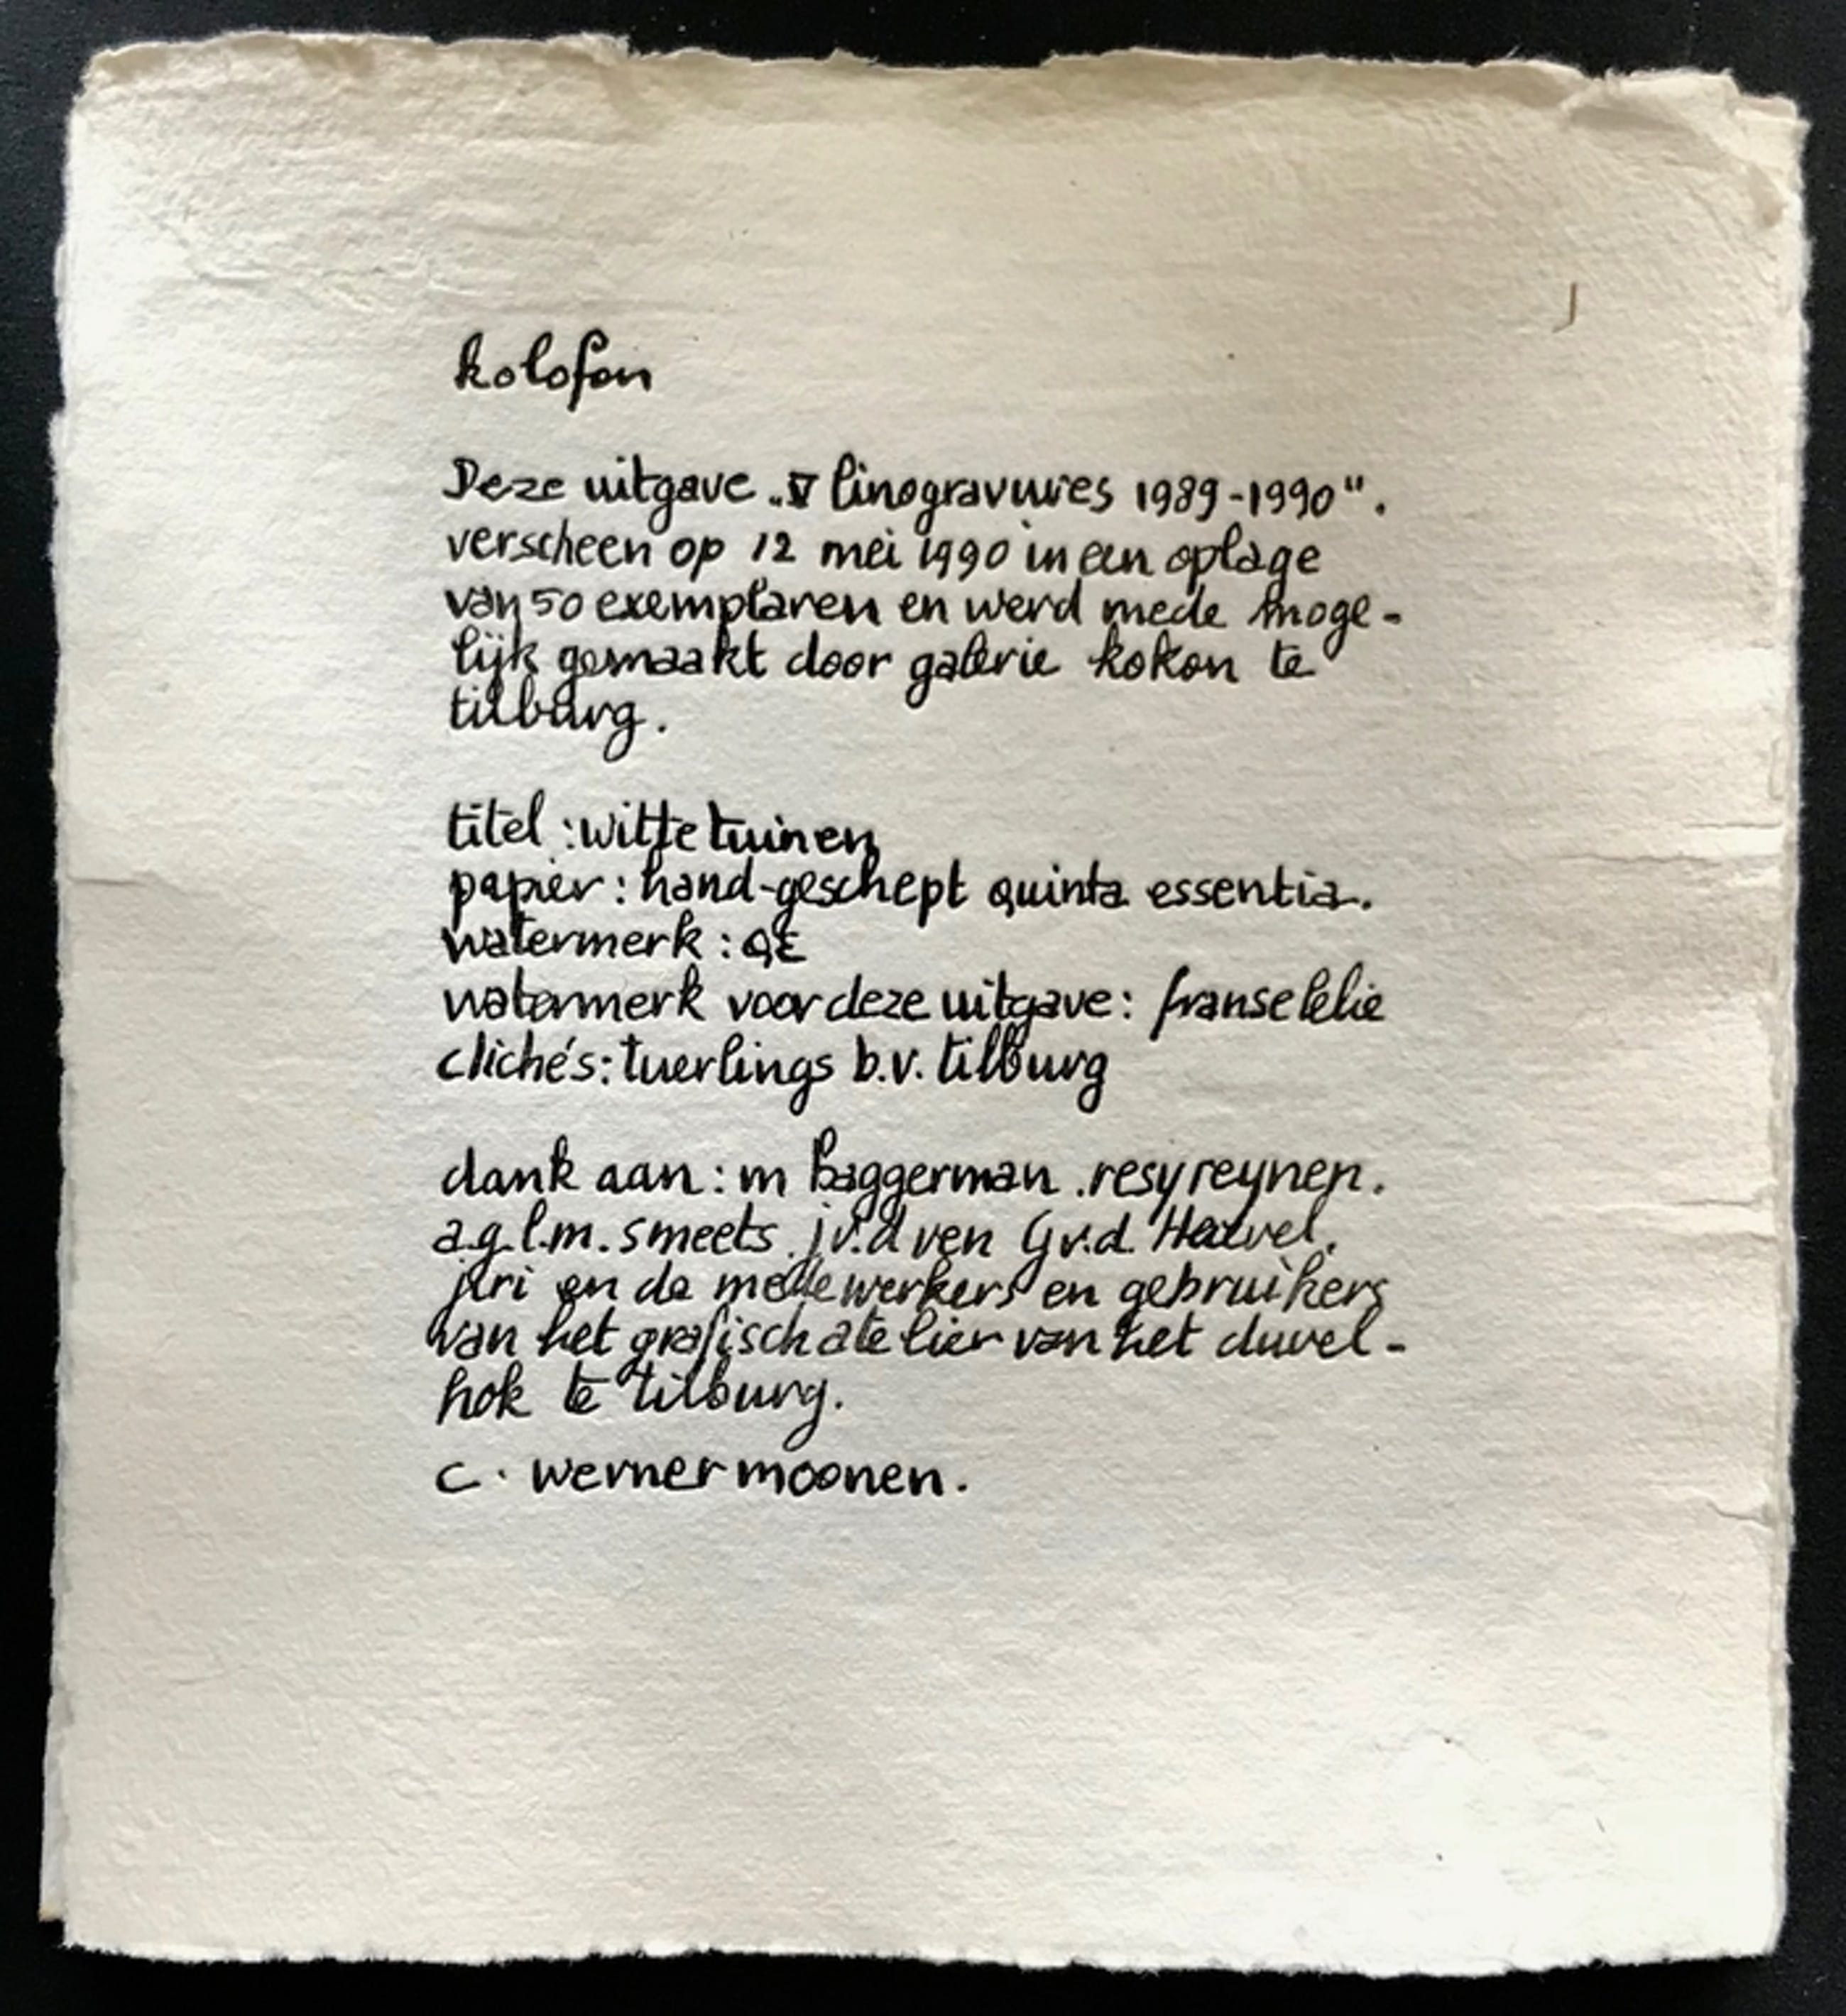 kolofon
Deze uitgave „V linogravures 1989-1990".
verscheen op 12 mei 1990 in een oplage
van 50 exemplaren en werd mede moge-
lijk gemaakt door galerie kokon te
tilburg.
titel : witte tuinen
papier : hand-geschept quinta essentia.
watermerk : QE
watermerk voor deze uitgave : franse lelie
clichés : tuerlings b.v. tilburg
dank aan : m baggerman . resy reynen.
a.g.l.m. smeets . j v.d ven G v.d. Heuvel.
jeri en de medewerkers en gebruikers
van het grafisch atelier van het duvel-
hok te tilburg.
c. werner moonen.